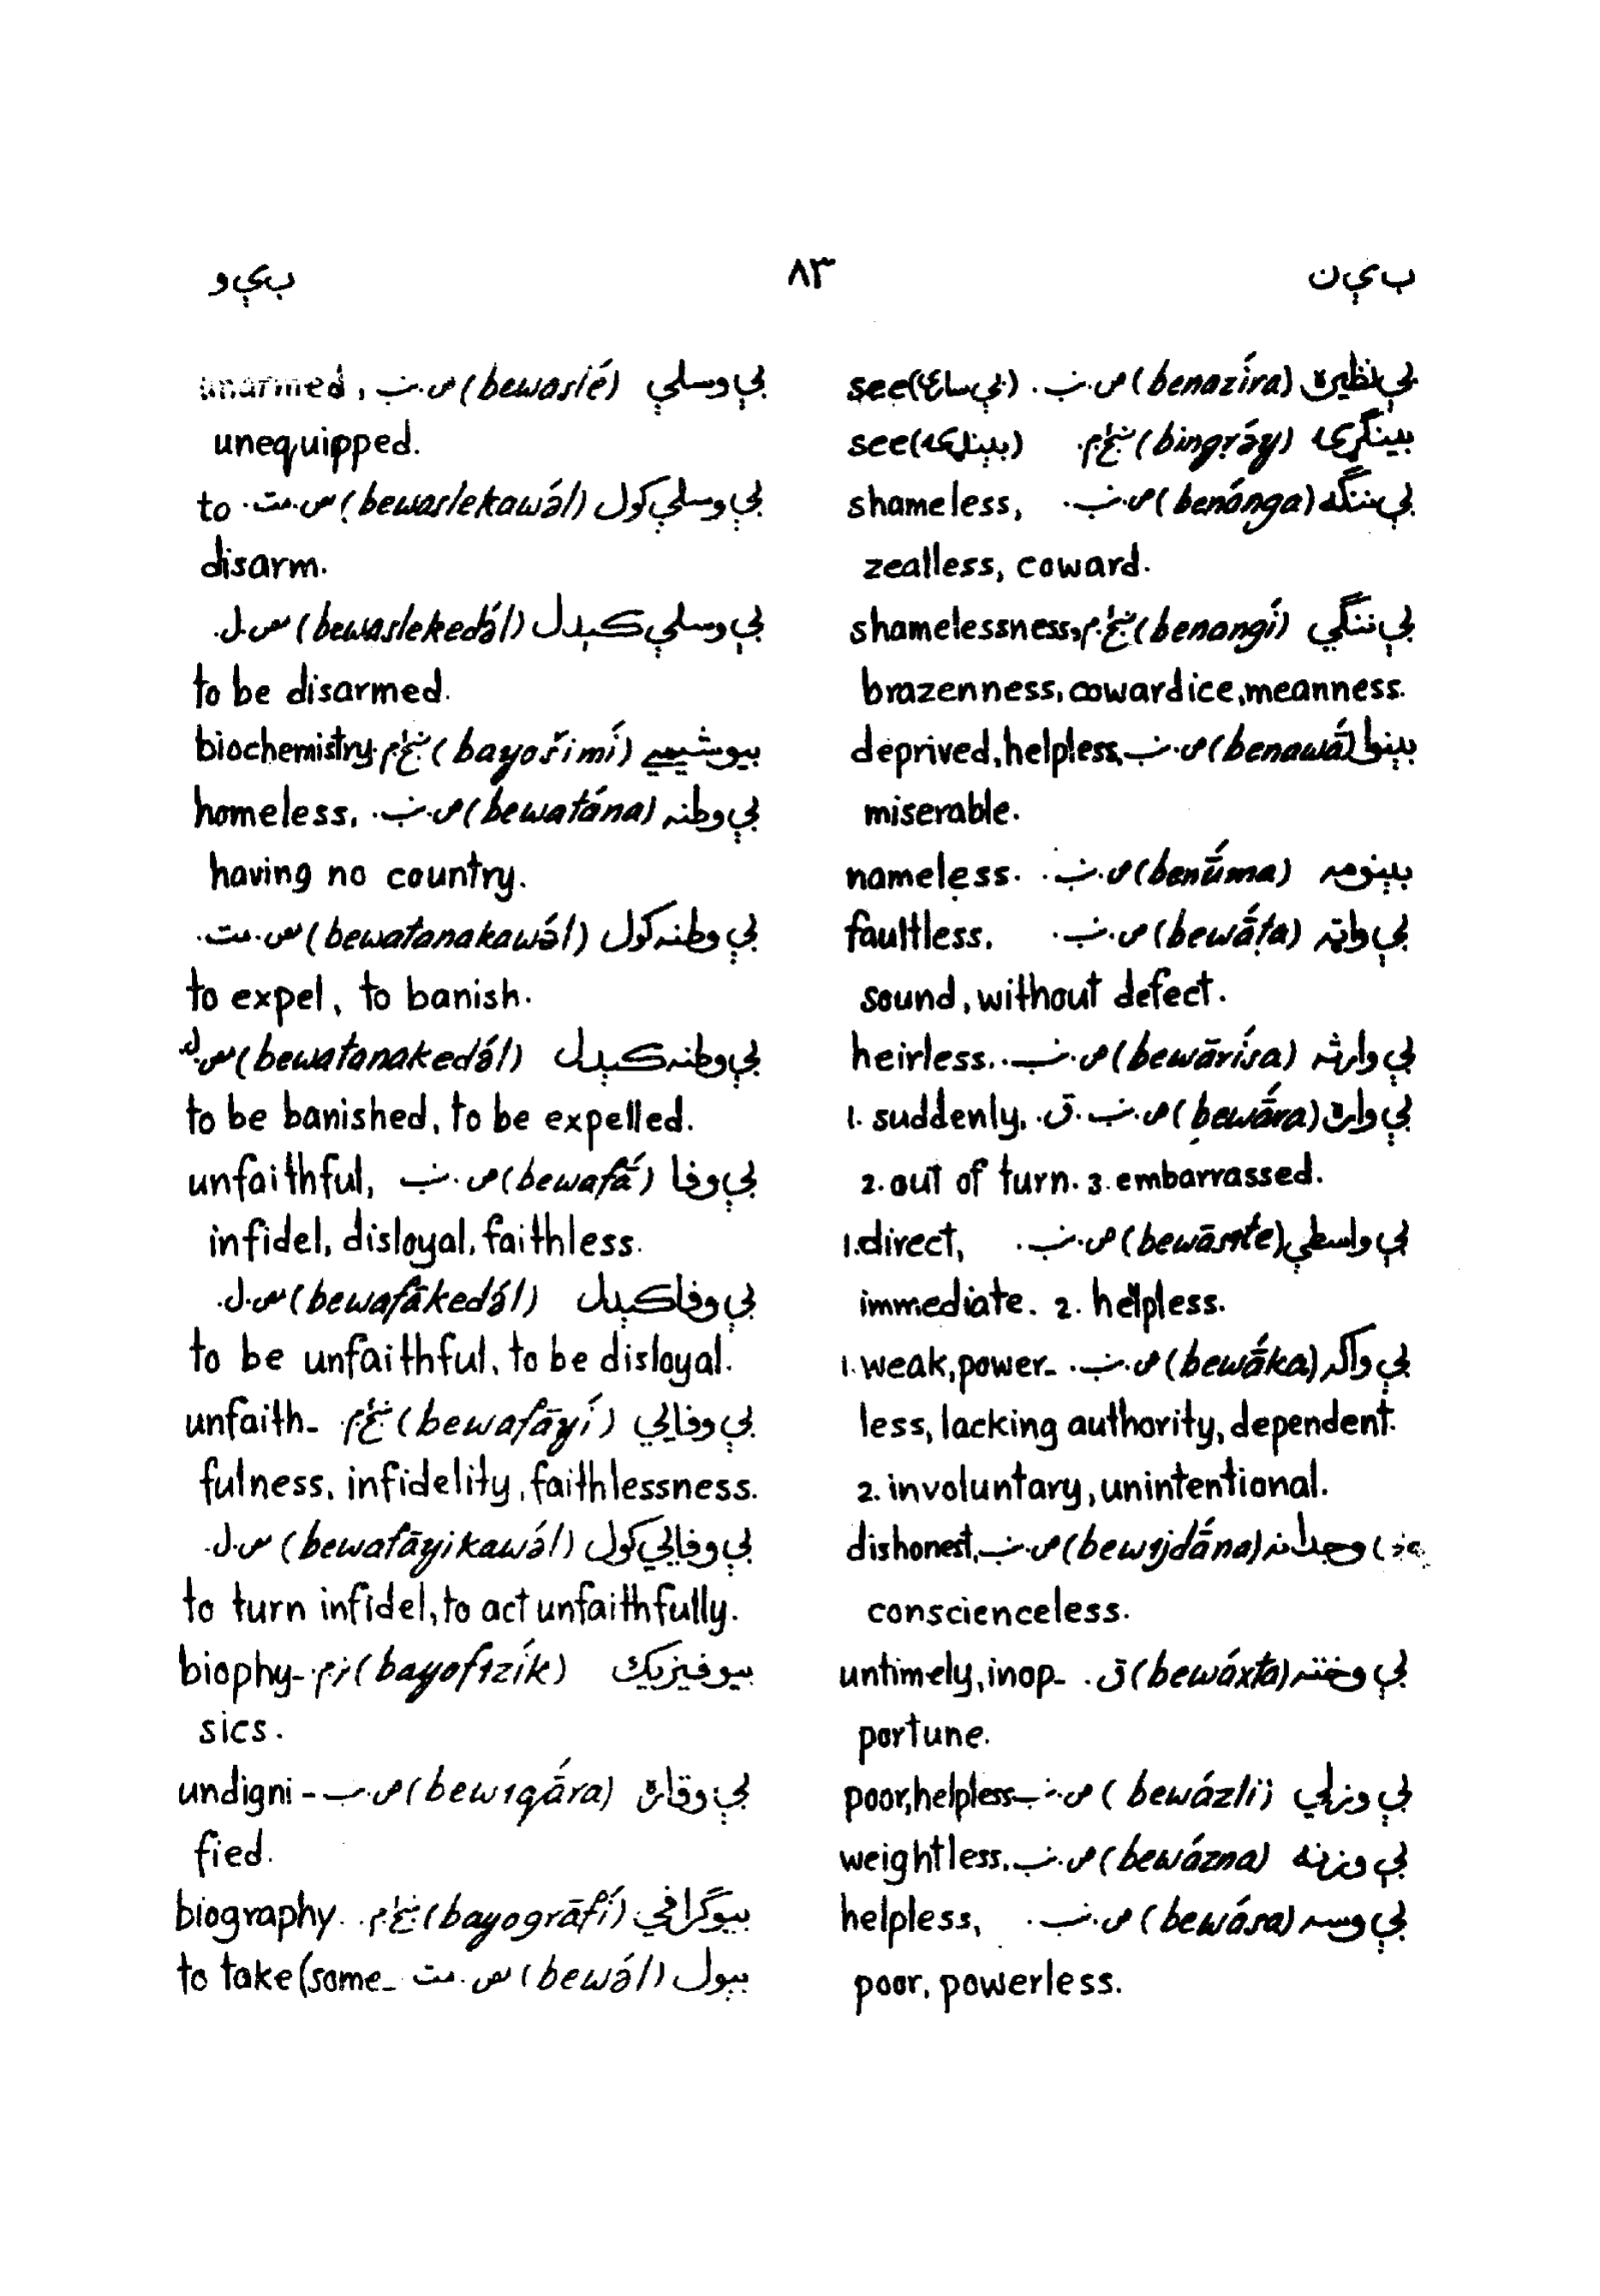 ب ې ن ۸۳ ب ې و
بې نظیره (benazíra) ص.ب. see(بې ساع)
بینګړی (bingṛáy) see
بې ننګه (benánga) ص.ب. shameless,
zealless, coward.
بې ننګي (benangí) shamelessness,
brazenness, cowardice, meanness.
بېنوا (benawā́) ص.ب. deprived, helpless,
miserable.
بېنومه (benū́ma) ص.ب. nameless.
بې واټه (bewā́ṭa) ص.ب. faultless,
sound, without defect.
بې وارثه (bewārísa) ص.ب. heirless.
بې واره (bewā́ra) ص.ب. ق. 1. suddenly,
2. out of turn. 3. embarrassed.
بې واسطې (bewāsıte) ص.ب. 1. direct,
immediate. 2. helpless.
بې واکه (bewā́ka) ص.ب. 1. weak, power-
less, lacking authority, dependent.
2. involuntary, unintentional.
وجدانه (bewıjdā́na) ص.ب. dishonest,
conscienceless.
بې وخته (bewáxta) ق. untimely, inop-
portune.
بې وزلي (bewázli) ص.ب. poor, helpless
بې وزنه (bewázna) ص.ب. weightless.
بې وسه (bewása) ص.ب. helpless,
poor, powerless.
بې وسلې (bewaslé) ص.ب. unarmed,
unequipped.
بې وسلې کول (bewaslekawə́l) س.مت. to
disarm.
بې وسلې کېدل (bewaslekedə́l) س.ل.
to be disarmed.
بیوشیمي (bayošimí) biochemistry.
بې وطنه (bewatána) ص.ب. homeless,
having no country.
بې وطنه کول (bewatanakawə́l) س.مت.
to expel, to banish.
بې وطنه کېدل (bewatanakedə́l) س.ل.
to be banished, to be expelled.
بې وفا (bewafā́) ص.ب. unfaithful,
infidel, disloyal, faithless.
بې وفا کېدل (bewafākedə́l) س.ل.
to be unfaithful, to be disloyal.
بې وفایي (bewafāyí) unfaith-
fulness, infidelity, faithlessness.
بې وفایي کول (bewafāyikawə́l) س.ل.
to turn infidel, to act unfaithfully.
بیوفیزیک (bayofızík) biophy-
sics.
بې وقاره (bewıqā́ra) ص.ب. undigni-
fied.
بیوګرافي (bayogrāfí) biography.
بېول (bewə́l) س.مت. to take (some-